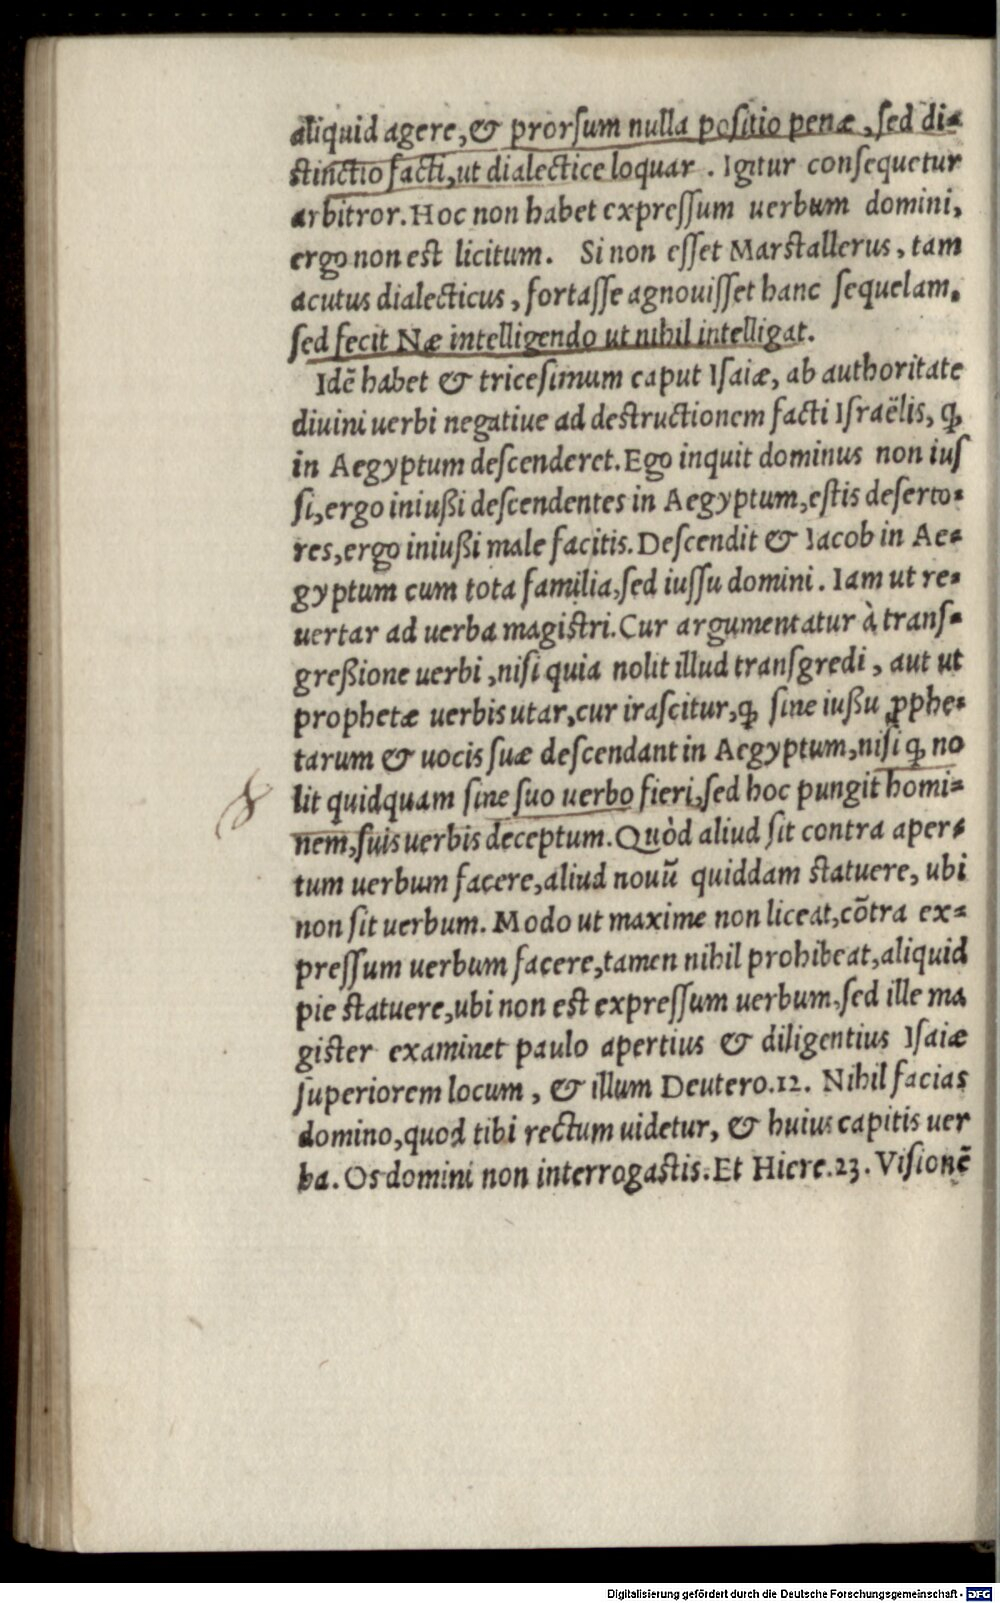 aliquid agere, & prorſum nulla poſitio penæ, ſed di=
ſtinctio facti, ut dialectice loquar. Igitur conſequetur
arbitror. Hoc non habet expreſſum uerbum domini,
ergo non eſt licitum. Si non eſſet Marſtallerus, tam
acutus dialecticus, fortaſſe agnouiſſet hanc ſequelam.
ſed fecit Næ intelligendo ut nihil intelligat.
Idē habet & triceſimum caput Iſaiæ, ab authoritate
diuini uerbi negatiue ad deſtructionem facti Iſraëlis, ꝙ
in Aegyptum deſcenderet. Ego inquit dominus non iuſ
ſi, ergo iniußi deſcendentes in Aegyptum, eſtis deſerto=
res, ergo iniußi male facitis. Deſcendit & Iacob in Ae=
gyptum cum tota familia, ſed iuſſu domini. Iam ut re=
uertar ad uerba magiſtri. Cur argumentatur à tranſ=
greßione uerbi, niſi quia nolit illud tranſgredi, aut ut
prophetæ uerbis utar, cur iraſcitur, ꝙ ſine iußu ꝓphe=
tarum & uocis ſuæ deſcendant in Aegyptum, niſi ꝙ no
lit quidquam ſine ſuo uerbo fieri, ſed hoc pungit homi=
nem, ſuis uerbis deceptum. Quòd aliud ſit contra aper=
tum uerbum facere, aliud nouū quiddam ſtatuere, ubi
non ſit uerbum. Modo ut maxime non liceat, cōtra ex=
preſſum uerbum facere, tamen nihil prohibeat, aliquid
pie ſtatuere, ubi non eſt expreſſum uerbum, ſed ille ma
giſter examinet paulo apertius & diligentius Iſaiæ
ſuperiorem locum, & illum Deutero.12. Nihil facias
domino, quod tibi rectum uidetur, & huius capitis uer
ba. Os domini non interrogaſtis. Et Hiere.23. Viſionē
Digitalisierung gefördert durch die Deutsche Forschungsgemeinschaft - DFG